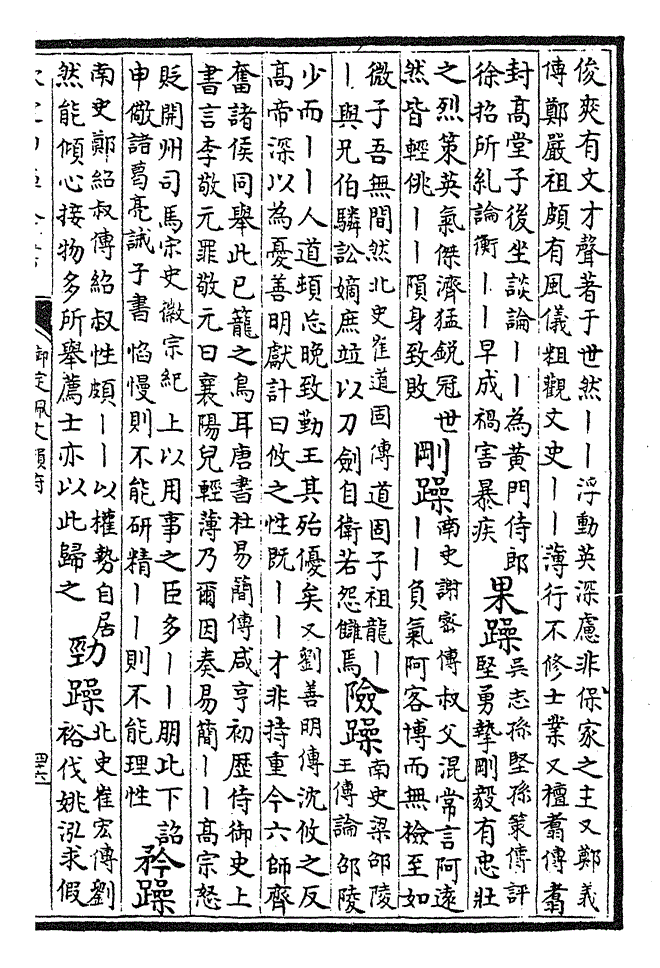 俊爽有文才聲著于世然丨丨浮動英深慮非保家之主又鄭義
傳鄭嚴祖頗有風儀粗觀文史丨丨薄行不修士業又檀翥傳翥
封高堂子後坐談論丨丨為黃門侍郎
徐招所糺論衡丨丨早成禍害暴疾
果躁
吳志孫堅孫策傳評
堅勇摯剛毅有忠壯
之烈策英氣傑濟猛銳冠世
然皆輕佻丨丨隕身致敗
剛躁
南史謝密傳叔父混常言阿遠
丨丨負氣阿客博而無檢至如
微子吾無間然北史崔道固傳道固子祖龍丨
丨與兄伯驎訟嫡庶竝以刀劍自衛若怨讎焉
險躁
南史梁邵陵
王傳論邵陵
少而丨丨人道頓忘晚致勤王其殆優矣又劉善明傳沈攸之反
高帝深以為憂善明獻計曰攸之性既丨丨才非持重今六師齊
奮諸侯同舉此已籠之鳥耳唐書杜易簡傳咸亨初歷侍御史上
書言李敬元罪敬元曰襄陽兒輕薄乃爾因奏易簡丨丨高宗怒
貶開州司馬宋史徽宗紀 上以用事之臣多丨丨朋比下詔
申儆諸葛亮誡子書慆慢則不能研精丨丨則不能理性
矜躁
南史鄭紹叔傳紹叔性頗丨丨以權勢自居
然能傾心接物多所舉薦士亦以此歸之
勁躁
北史崔宏傳劉
裕伐姚泓求假
御定佩文韻府
四六